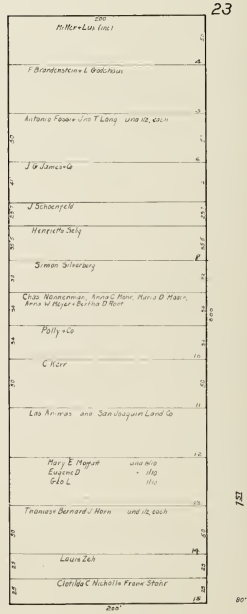 23
200
Miller & Lux (inc)
50
4
F Brandenstein & L Godchaux
Antonio Fosara Jno T Lang und 1/2, each
50
J G James & Co
J Schoenfeld
Henrietta Selig
Simon Silverberg
Chas Nonnenman, Anna C Mohr, Maria D Maack,
Anna W Meyer & Bertha D Rant
600
Polly & Co
10
C Kerr
50
11
Las Animas and San Joaquin Land Co
12
Mary E Moffatt und 8/10
Eugene D " 1/10
Geo L 1/10
13
Thomas & Bernard J Horn und 1/2, each
50
14
Louis Zeh
25
Clotilda C Nicholls Frank Stahr
25
15
200'
1ST
80'